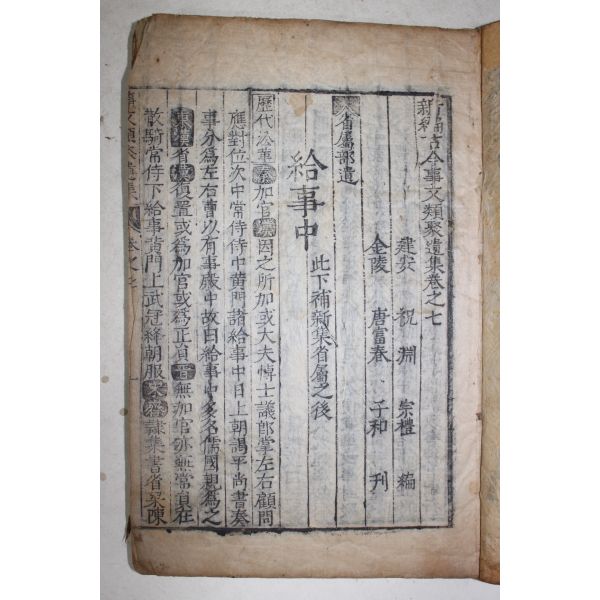 新編古今事文類聚遺集卷之七
建安 祝淵 宗禮 編
金陵 唐富春 子和 刊
省屬部遺
給事中 此下補新集省屬之後
歷代沿革 秦加官漢因之所加或大夫博士議郎掌左右顧問
應對位次中常侍侍中黄門諸給事中日上朝謁平尚書奏
事分爲左右曹以有事殿中故曰給事中多名儒國親爲之
東漢省魏復置或爲加官或爲正員晉無加官亦無常員在
散騎常侍下給事黄門上武冠絳朝服宋齊隸集書省梁陳
事文類聚遺集 卷之七 一